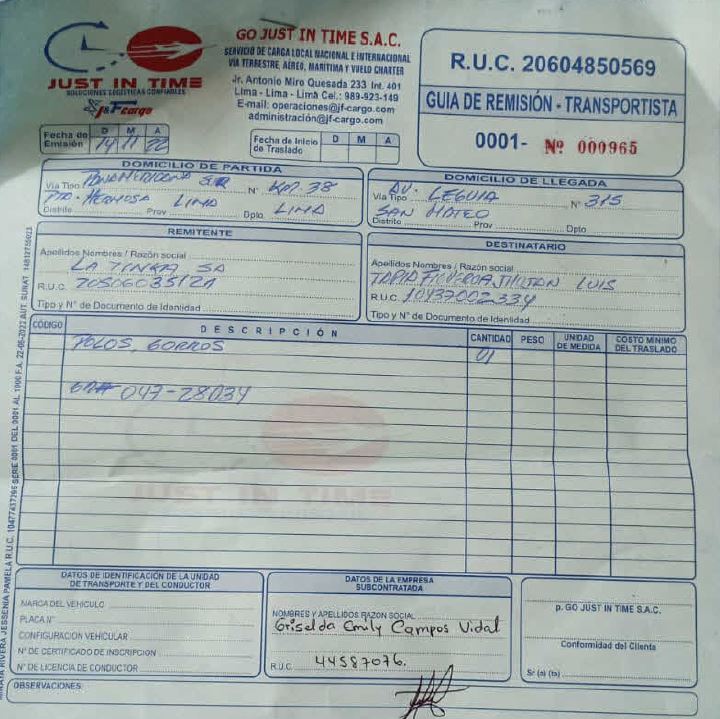 JUST IN TIME
SOLUCIONES LOGÍSTICAS CONFIABLES
J&F cargo
GO JUST IN TIME S.A.C.
SERVICIO DE CARGA LOCAL NACIONAL E INTERNACIONAL
VIA TERRESTRE, AEREO, MARITIMA Y VUELO CHARTER
Jr. Antonio Miro Quesada 233 Int. 401
Lima - Lima - Lima Cel.: 989-923-149
E-mail: operaciones@jf-cargo.com
administración@jf-cargo.com
R.U.C. 20604850569
GUIA DE REMISIÓN - TRANSPORTISTA
0001- Nº 000965
Fecha de Emisión D M A
14 11 22
Fecha de Inicio de Traslado D M A
DOMICILIO DE PARTIDA
Vía Tipo PANAMERICANA SUR Nº KM. 38
PTO. HERMOSA LIMA LIMA
Distrito Prov Dpto
DOMICILIO DE LLEGADA
Vía Tipo AV. LEGUIA Nº 315
SAN MATEO
Distrito Prov Dpto
REMITENTE
Apellidos Nombres / Razón social
LA TINKA SA
R.U.C. 20506035121
Tipo y N° de Documento de Identidad
DESTINATARIO
Apellidos Nombres / Razón social
TAPIA FIGUEROA JHILIAN LUIS
R.U.C. 10437002334
Tipo y N° de Documento de Identidad
CÓDIGO DESCRIPCIÓN CANTIDAD PESO UNIDAD DE MEDIDA COSTO MÍNIMO DEL TRASLADO
POLOS, GORROS 01
047-28034
JUST IN TIME
DATOS DE IDENTIFICACIÓN DE LA UNIDAD DE TRANSPORTE Y DEL CONDUCTOR
MARCA DEL VEHICULO
PLACA N°
CONFIGURACION VEHICULAR
N° DE CERTIFICADO DE INSCRIPCION
N° DE LICENCIA DE CONDUCTOR
DATOS DE LA EMPRESA SUBCONTRATADA
NOMBRES Y APELLIDOS RAZON SOCIAL
Griselda Emily Campos Vidal
R.U.C. 44587076.
p. GO JUST IN TIME S.A.C.
Conformidad del Cliente
Sr (a) (ta)
OBSERVACIONES
RIVERA JESSENIA PAMELA R.U.C. 10477437796 SERIE 0001 DEL 0001 AL 1000 F.A. 22-08-2022 AUT. SUNAT